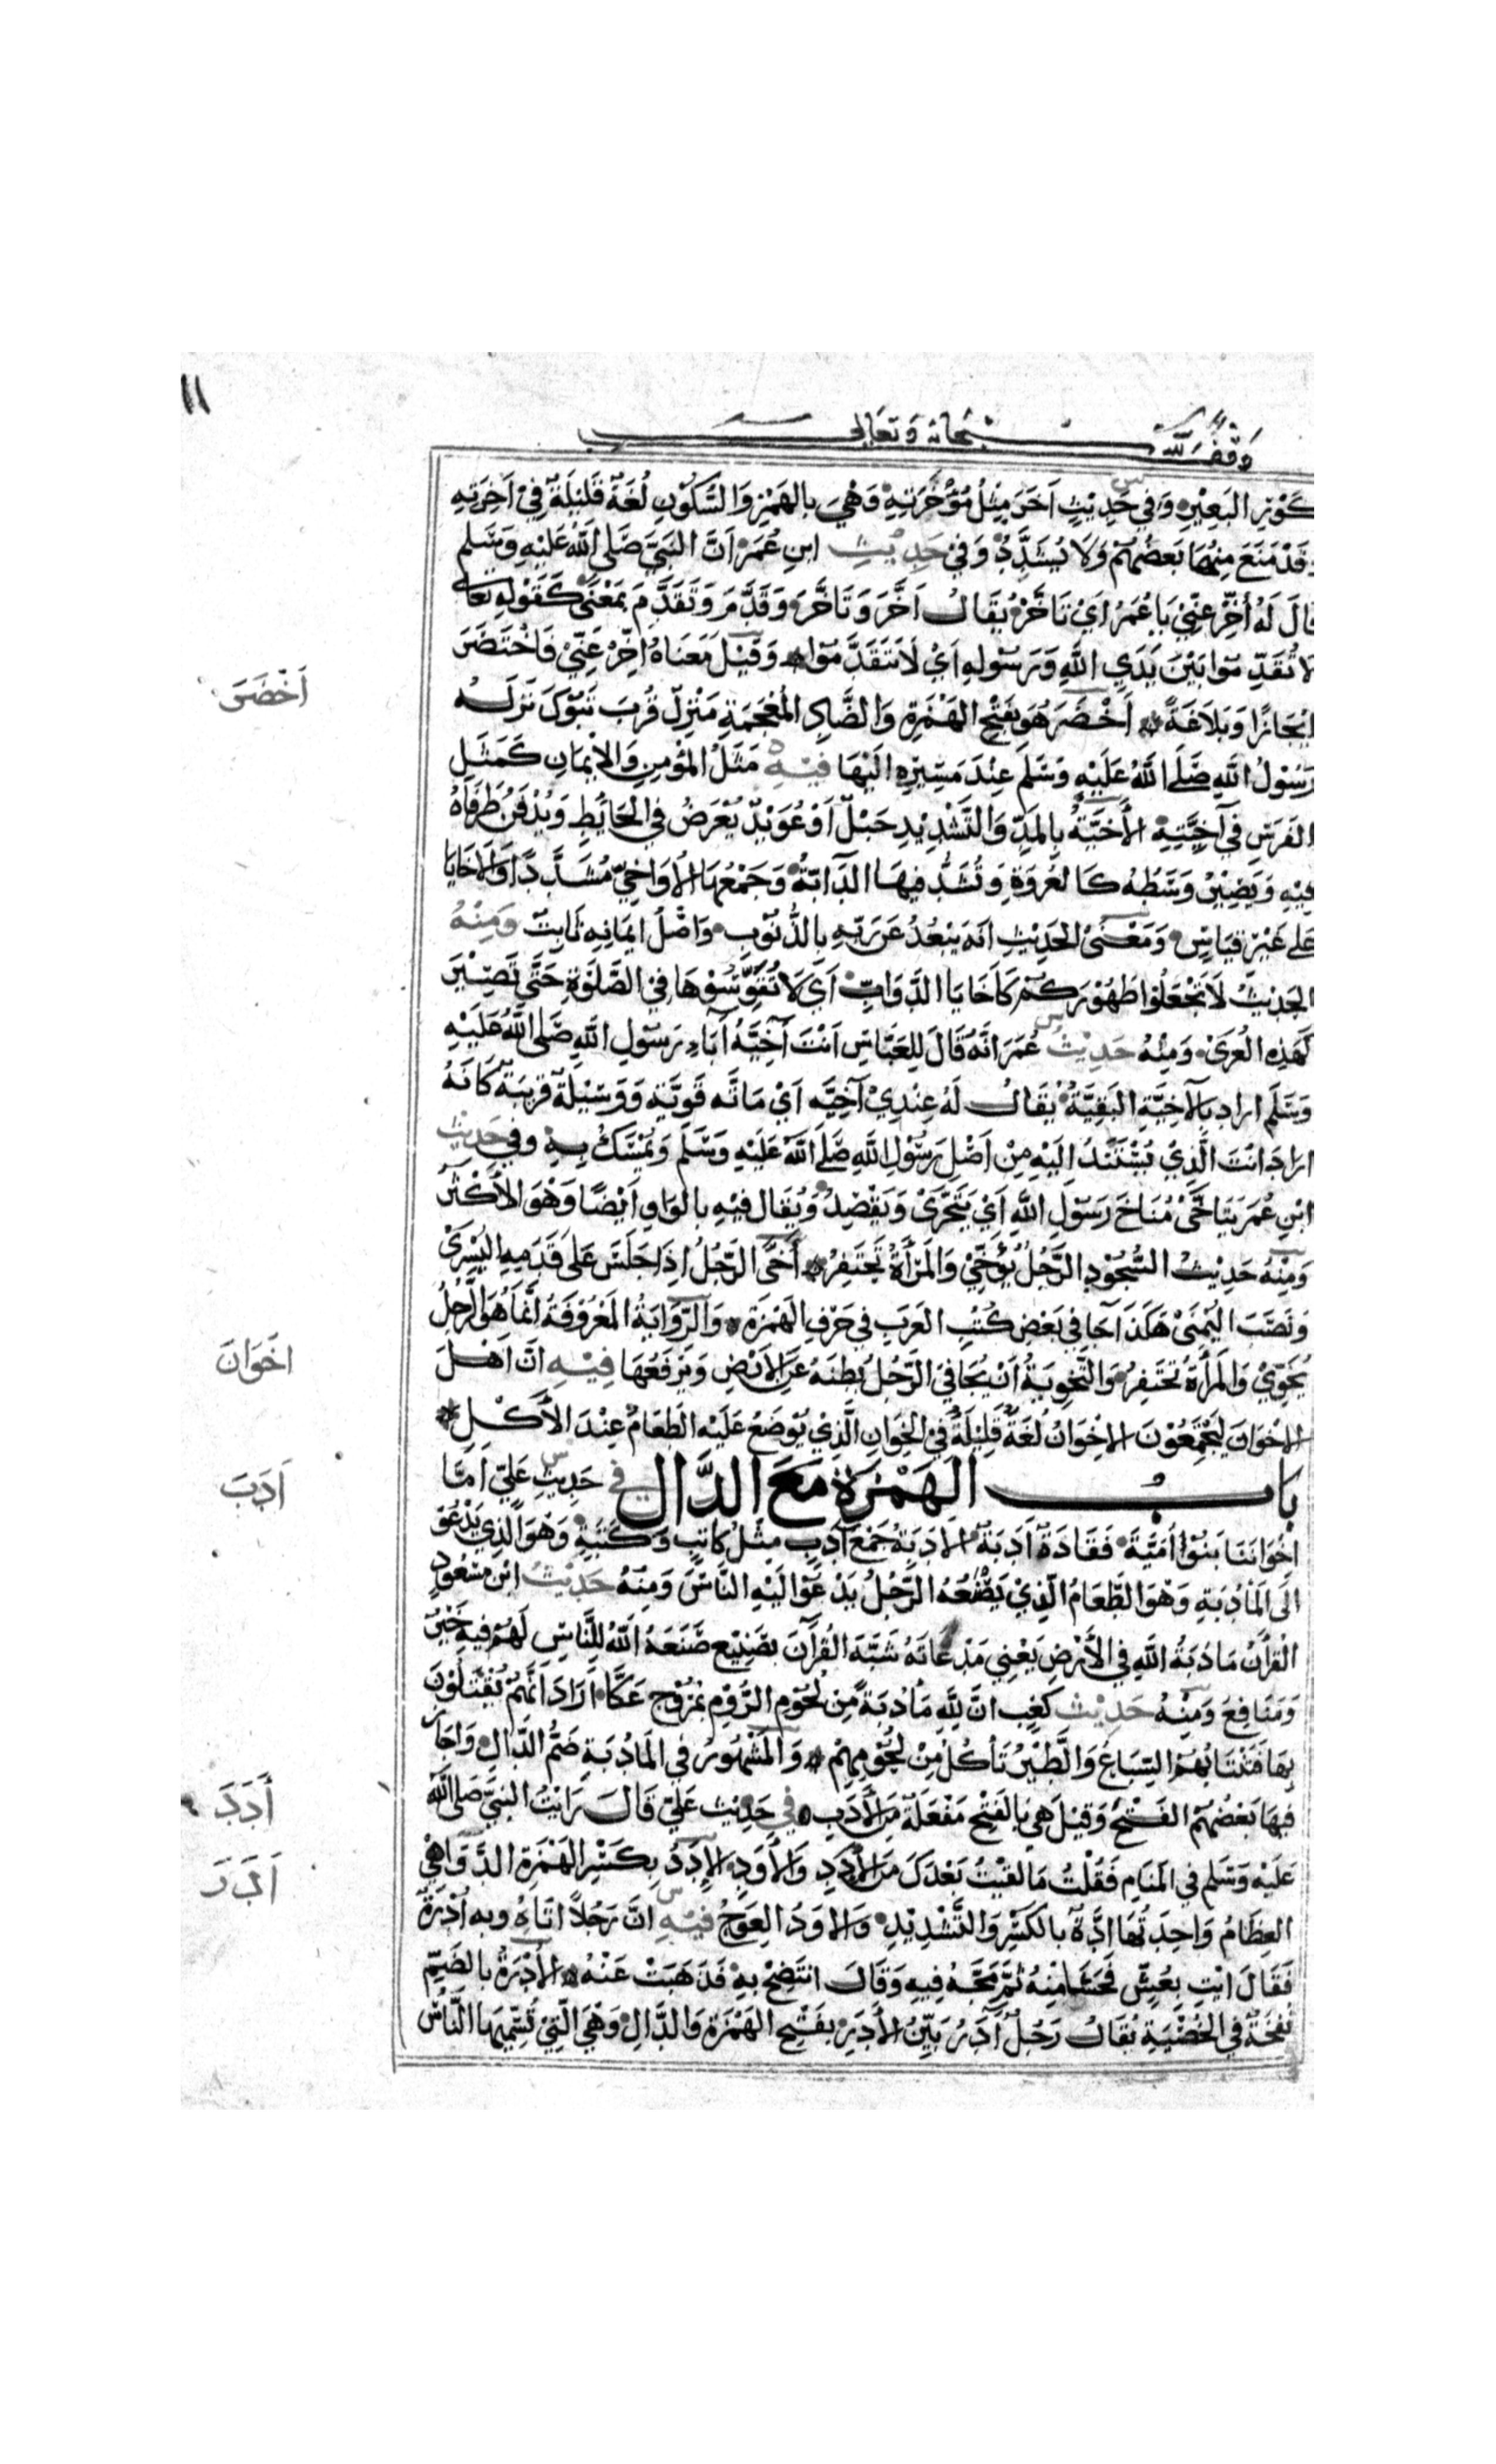 ١١
وقف لله سبحانه وتعالى
كَوْرِ البَعِيْرِ وَفي حَدِيْثٍ آخَرَ مِثْلُ مُؤْخَرَتِهِ وَهْيَ بالهَمْزِ وَالسُّكُوْنِ لُغَةٌ قَلِيْلَةٌ فِيْ آخِرَتِهِ
وَقَدْ مَنَعَ مِنْهَا بَعْضُهُمْ وَلَا يُشَدَّدُ وَفي حَدِيْثِ ابنِ عُمَرَ اَنَّ النَبيَّ صَلى اللهُ عَلَيْهِ وَسَلم
قالَ لَهُ أَخِّرْ عَنِّيْ يَا عُمَرُ اَيْ تَأَخَّرْ يُقَالُ اَخَّرَ وَتَاَخَّرَ وَقَدَّمَ وَتَقَدَّمَ بمَعْنًى كَقَوْلِهِ تعَالى
لَا تُقَدِّمُوْا بَيْنَ يَدَيِ اللهِ وَرَسُوْلِهِ اَيْ لَا تَتَقَدَّمُوْا وَقِيْلَ مَعْنَاهُ اَخِّرْ عَنِّيْ فَاخْتَصَرَ
اَخْضَرَ
اِيْجَازًا وَبَلَاغَةً اَخْضَرَ هُوَ بفَتْحِ الهَمْزَةِ وَالضَّادِ المُعْجَمَةِ مَنْزِلٌ قُرْبَ تَبُوْكَ نَزَلَهُ
رَسُوْلُ اللهِ صَلَّى اللهُ عَلَيْهِ وَسَلم عِنْدَ مَسِيْرِهِ اِلَيْهَا فِيْهِ مَثَلُ المُؤْمِنِ وَالاِيْمَانِ كَمَثَلِ
الفَرَسِ في آخِيَّتِهِ الأَخِيَّةُ بِالمَدِّ وَالتَّشْدِيْدِ حَبْلٌ اَوْ عُوَيْدٌ يُعْرَضُ في الحَائِطِ وَيُدْفَنُ طَرَفَاهُ
فِيْهِ وَيَصِيْرُ وَسَطُهُ كَالعُرْوَةِ وَتُشَدُّ فِيْهَا الدَّابَّةُ وَجَمْعُهَا الأَوَاخِيُّ مُشَدَّدًا وَالاَخَايَا
عَلى غَيْرِ قِيَاسٍ وَمَعْنَى الحَدِيْثِ انَهُ يَبْعُدُ عَن رَبِّهِ بِالذُّنُوْبِ وَاَصْلُ ايْمَانِهِ ثَابِتٌ وَمِنْهُ
الحَدِيْثُ لَا تَجْعَلُوْا ظُهُوْرَكُمْ كَاَخَايَا الدَّوَابِّ اَيْ لَا تُقَوِّسُوْهَا فِي الصَّلَوةِ حَتَّى تَصِيْرَ
كَهَذِهِ العُرَى وَمِنْهُ حَدِيْثُ عُمَرَ اَنَّهُ قَالَ لِلعَبَّاسِ اَنْتَ آخِيَّةُ آبَاءِ رَسُوْلِ اللهِ صَلى اللهُ عَلَيْهِ
وَسَلَّم اراد بالآخِيَّةِ البَقِيَّةَ يُقَالُ لَهُ عِنْدِيْ آخِيَّه اَيْ مَاتَّه قَوِيَّة وَوَسِيْلَة قَرِيبَة كَانَهُ
ارادَ اَنْتَ الَّذِيْ يُسْتَنَدُ اِلَيْهِ مِنْ اَصْلِ رَسُوْلِ اللهِ صَلَّى اللهُ عَلَيْهِ وَسَلَّم وَيُتَمَسَّكُ بِهِ وفي حَدِيْثِ
ابْنِ عُمَرَ يَتَاَخَّىْ مُنَاخَ رَسُوْلِ اللهِ اَيْ يَتَحَرَّىْ وَيَقْصِدُ وَيُقَال فِيْهِ بالوَاوِ اَيْضًا وَهْوَ الاَكْثَرُ
وَمِنْهُ حَدِيْثُ السُّجُوْدِ الرَّجُلُ يُؤَخِّيْ وَالمَرْأَةُ تَحْتَفِزُ اَخَّى الرَّجُلُ اِذَا جَلَسَ عَلى قَدَمِهِ اليُسْرَى
وَنَصَبَ اليُمْنَىْ هَكَذَا جَا في بَعْضِ كُتُبِ العَرَبِ في حَرْفِ الهَمْزَة وَالرِّوَايَةُ المَعْرُوْفَةُ اِنَّمَا هُوَ الرَّجُلُ
اِخْوَانَ
يُخَوِّيْ وَالمَرْأَةُ تَحْتَفِزُ وَالتَّخْوِيَةُ اَنْ يُجَافيَ الرَّجُلُ بَطْنَهُ عَنِ الاَرْضِ وَيَرْفَعُهَا فِيْهِ اَنَّ اَهْلَ
الاِخْوَانِ لَيَجْتَمِعُوْنَ الاِخْوَانُ لُغَةٌ قَلِيْلَةٌ فِي الخِوَانِ الَّذِيْ يُوْضَعُ عَلَيْهِ الطَعَامُ عِنْدَ الأَكْلِ
اَدَبَ
بابُ الهَمْزَةِ مَعَ الدَّالِ في حَدِيْثِ عَلِيّ اَمَّا
اخْوَانُنَا بَنُوْ أُمَيَّةَ فَقَادَةٌ اَدَبَةٌ الاَدَبَةُ جَمْعُ آدِبٍ مِثْلُ كَاتِبٍ وَكَتَبَةٍ وَهْوَ الَّذِي يَدْعُوْ
الَى المَأْدُبَةِ وَهْوَ الطَّعَامُ الَّذِيْ يَصْنَعُهُ الرَّجُلُ يَدْعُوْ الَيْهِ النَّاسَ وَمِنْهُ حَدِيْثُ ابْنِ مَسْعُودٍ
الْقُرْآنُ مَادُبَةُ اللهِ فِي الأَرْضِ يَعْنِي مَدْعَاتَهُ شَبَّهَ القُرْآنَ بصَنِيْعٍ صَنَعَهُ اللهُ لِلنَّاسِ لَهُمْ فِيهِ خَيْرٌ
وَمَنَافِعُ وَمِنْهُ حَدِيْث كَعْبٍ انَّ لِلهِ مَأْدُبَةً مِن لُحُوْمِ الرُّوْمِ بمُرُوْجِ عَكَّا اَرَادَ انَّهُمْ يُقْتَلُوْنَ
بِهَا فَتَنْتَابُهُمُ السِّبَاعُ وَالطَّيْرُ تَأكُلُ مِنْ لُحُوْمِهِمْ وَالمَشْهُورُ في المَادُبَةِ ضَمُّ الدَّالِ وَاَجَازَ
أَدَدَ
فِيهَا بَعْضُهُمْ الفَتْحَ وَقِيْلَ هِيَ بِالفَتْحِ مَفْعَلَةٌ مِنَ الأَدَبِ في حَدِيْث عَليّ قَالَ رَأيْتُ النَبِيَّ صَلى اللهُ
اَدَرَ
عَلَيْهِ وَسَلم فِي المَنَامِ فَقُلْتُ مَا لَقِيْتُ بَعْدَكَ مِنَ الإِدَدِ وَالأَوَدِ الإِدَدُ بِكَسْرِ الهَمْزَةِ الدَّوَاهِيْ
العِظَامُ وَاحِدَتُهَا اِدَّةٌ بالكَسْرِ وَالتَّشْدِيْدِ وَالاَوَدُ العِوَجُ فِيْهِ انَّ رَجُلًا اتَاهُ وبه اُدْرَةٌ
فَقَالَ ائْتِ بِعُسٍّ فَحَسَا مِنْهُ ثُمَّ مَجَّهُ فِيهِ وَقَالَ انْتَضِحْ بِهِ فَذَهَبَتْ عَنْهُ الأُدْرَةُ بالضَّمِّ
نَفْخَةٌ في الخُصْيَةِ يُقَالُ رَجُلٌ آدَرُ بَيِّنُ الأَدَرِ بفَتْحِ الهَمْزَةِ وَالدَّالِ وَهْيَ الَّتِيْ تُسَمِّيهَا النَّاسُ